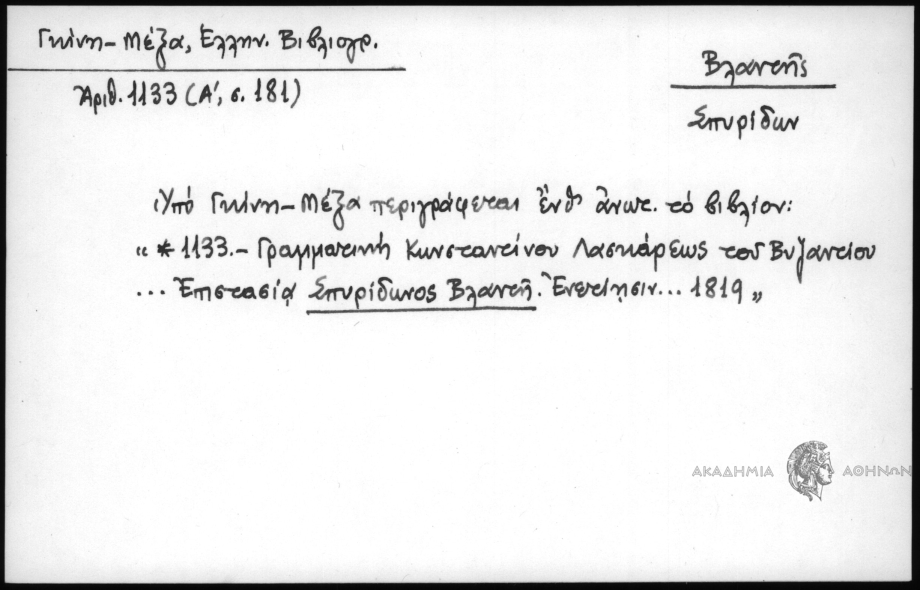 Γκίνη-Μέξα, Ἑλλην. Βιβλιογρ.
Ἀριθ. 1133 (Α', σ. 181)
Βλαντῆς
Σπυρίδων
Ὑπό Γκίνη-Μέξα περιγράφεται ἔνθ' ἄνωτ. τό βιβλίον:
« * 1133.- Γραμματική Κωνσταντίνου Λασκάρεως τοῦ Βυζαντίου
... Ἐπιστασίᾳ Σπυρίδωνος Βλαντῆ. Ἐνετίῃσιν... 1819 »
ΑΚΑΔΗΜΙΑ ΑΘΗΝΩΝ